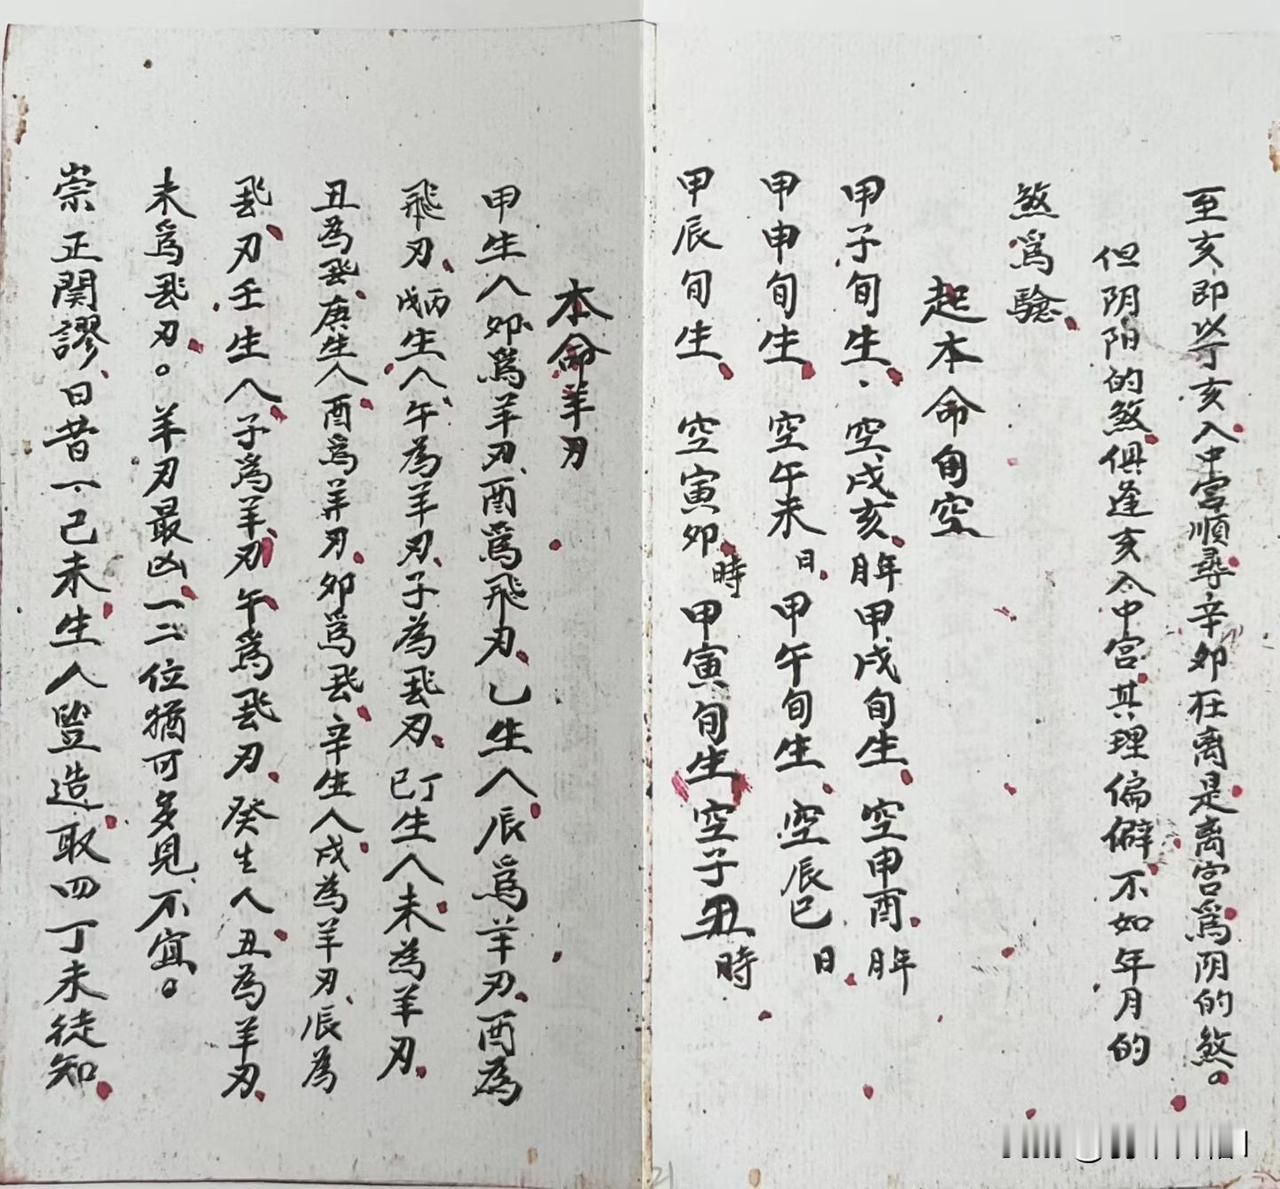 至亥即以丁亥入中宮順尋辛卯在离是离宮爲阴的煞。
但阴阳的煞俱逢亥入中宮其理偏僻不如年月的
煞爲驗
起本命旬空
甲子旬生空戌亥年月甲戌旬生空申酉年月
甲申旬生空午未日甲午旬生空辰巳日
甲辰旬生空寅卯時甲寅旬生空子丑時
本命羊刃
甲生人卯爲羊刃酉爲飛刃乙生人辰爲羊刃酉為
飛刃丙戊生人午為羊刃子為飛刃丁已生人未為羊刃
丑為飛庚生人酉爲羊刃卯爲飛辛生人戌為羊刃辰為
飛刃壬生人子爲羊刃午爲飛刃癸生人丑為羊刃
未爲飛刃。羊刃最凶一二位猶可多見不宜。
崇正闢謬曰昔一己未生人竪造取四丁未徒知